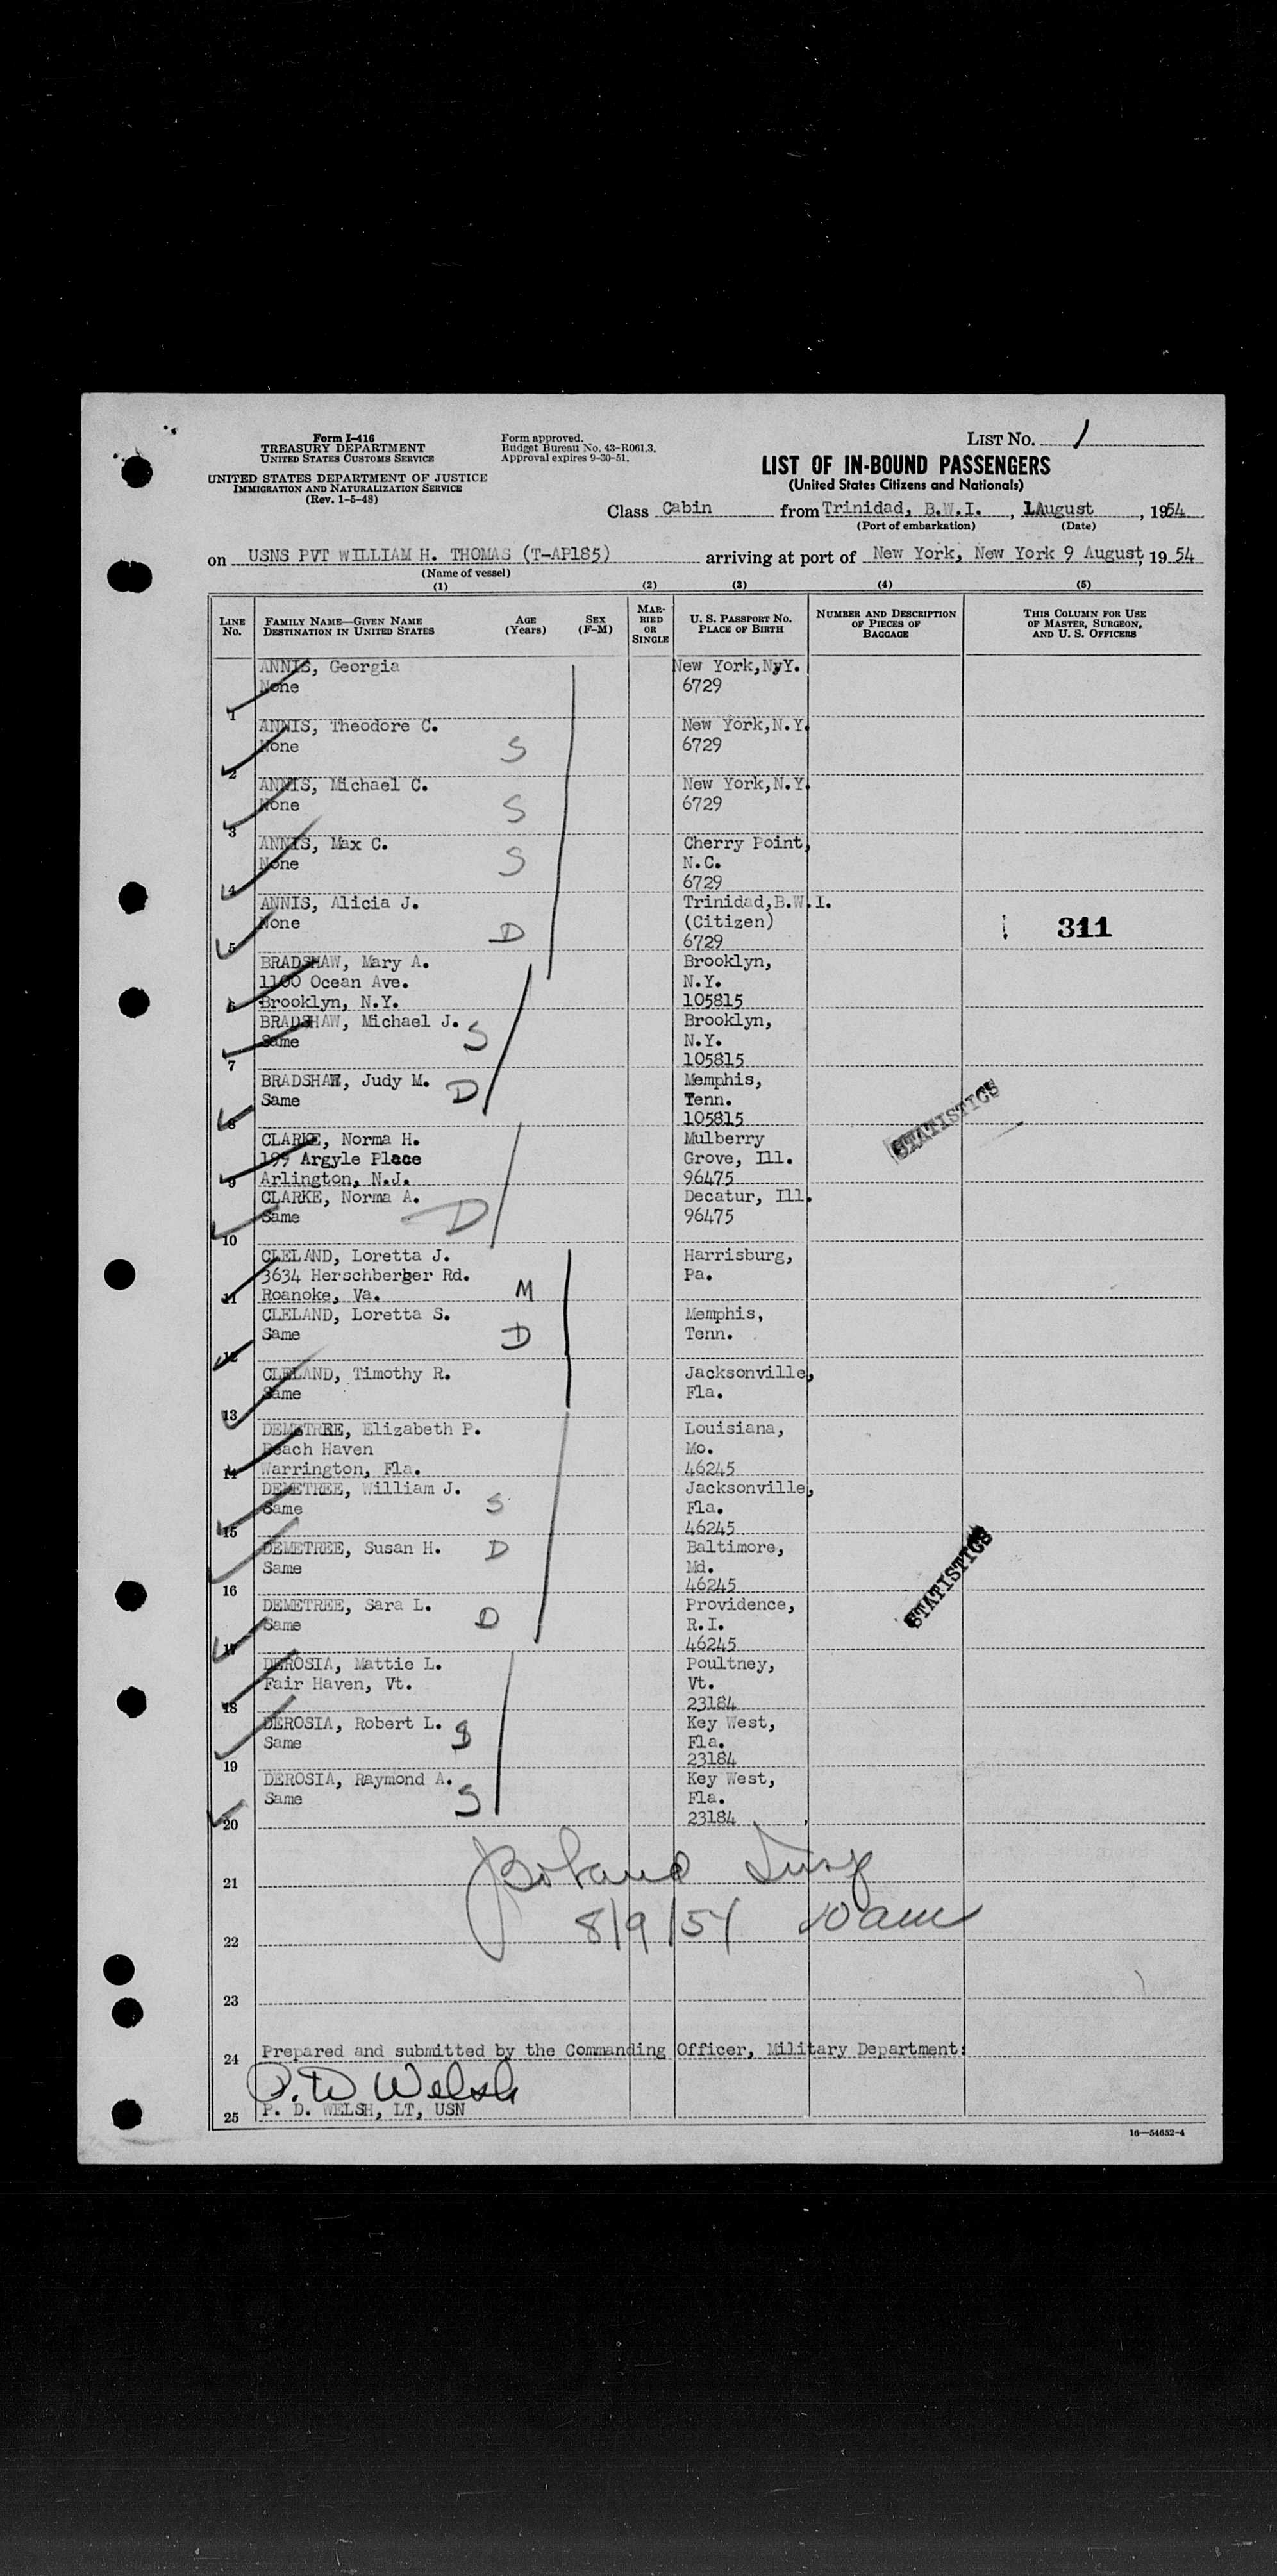 Form I-416
TREASURY DEPARTMENT
UNITED STATES CUSTOMS SERVICE
UNITED STATES DEPARTMENT OF JUSTICE
IMMIGRATION AND NATURALIZATION SERVICE
(Rev. 1-5-48)
Form approved.
Budget Bureau No. 43-R061.3.
Approval expires 9-30-51.
LIST NO. 1
LIST OF IN-BOUND PASSENGERS
(United States Citizens and Nationals)
Class Cabin from Trinidad, B.W.I., 1August, 1954
(Port of embarkation) (Date)
on USNS PVT WILLIAM H. THOMAS (T-AP185) arriving at port of New York, New York 9 August, 1954
(Name of vessel)
(1) (2) (3) (4) (5)
LINE NO. FAMILY NAME—GIVEN NAME DESTINATION IN UNITED STATES AGE (Years) SEX (F-M) MARRIED OR SINGLE U. S. PASSPORT NO. PLACE OF BIRTH NUMBER AND DESCRIPTION OF PIECES OF BAGGAGE THIS COLUMN FOR USE OF MASTER, SURGEON, AND U. S. OFFICERS
ANNIS, Georgia New York,NyY.
None 6729
1
ANNIS, Theodore C. New York,N.Y.
None S 6729
2
ANNIS, Michael C. New York,N.Y.
None S 6729
3
ANNIS, Max C. Cherry Point,
None S N.C.
4 6729
ANNIS, Alicia J. Trinidad,B.W.I.
None D (Citizen) 311
5 6729
BRADSHAW, Mary A. Brooklyn,
1100 Ocean Ave. N.Y.
6 Brooklyn, N.Y. 105815
BRADSHAW, Michael J. S Brooklyn,
Same N.Y.
7 105815
BRADSHAW, Judy M. D Memphis,
Same Tenn.
8 105815
STATISTICS
CLARKE, Norma H. Mulberry
199 Argyle Place Grove, Ill.
9 Arlington, N.J. 96475
CLARKE, Norma A. Decatur, Ill.
Same D 96475
10
CLELAND, Loretta J. Harrisburg,
3634 Herschberger Rd. Pa.
11 Roanoke, Va. M
CLELAND, Loretta S. Memphis,
Same D Tenn.
12
CLELAND, Timothy R. Jacksonville,
Same Fla.
13
DEMETREE, Elizabeth P. Louisiana,
Beach Haven Mo.
14 Warrington, Fla. 46245
DEMETREE, William J. Jacksonville,
Same S Fla.
15 46245
DEMETREE, Susan H. D Baltimore,
Same Md.
16 46245
STATISTICS
DEMETREE, Sara L. D Providence,
Same R.I.
17 46245
DEROSIA, Mattie L. Poultney,
Fair Haven, Vt. Vt.
18 23184
DEROSIA, Robert L. S Key West,
Same Fla.
19 23184
DEROSIA, Raymond A. Key West,
Same S Fla.
20 23184
21
8/9/54 10 am
22
23
24 Prepared and submitted by the Commanding Officer, Military Department:
P. D. Welsh
25 P. D. WELSH, LT, USN
16—54652-4